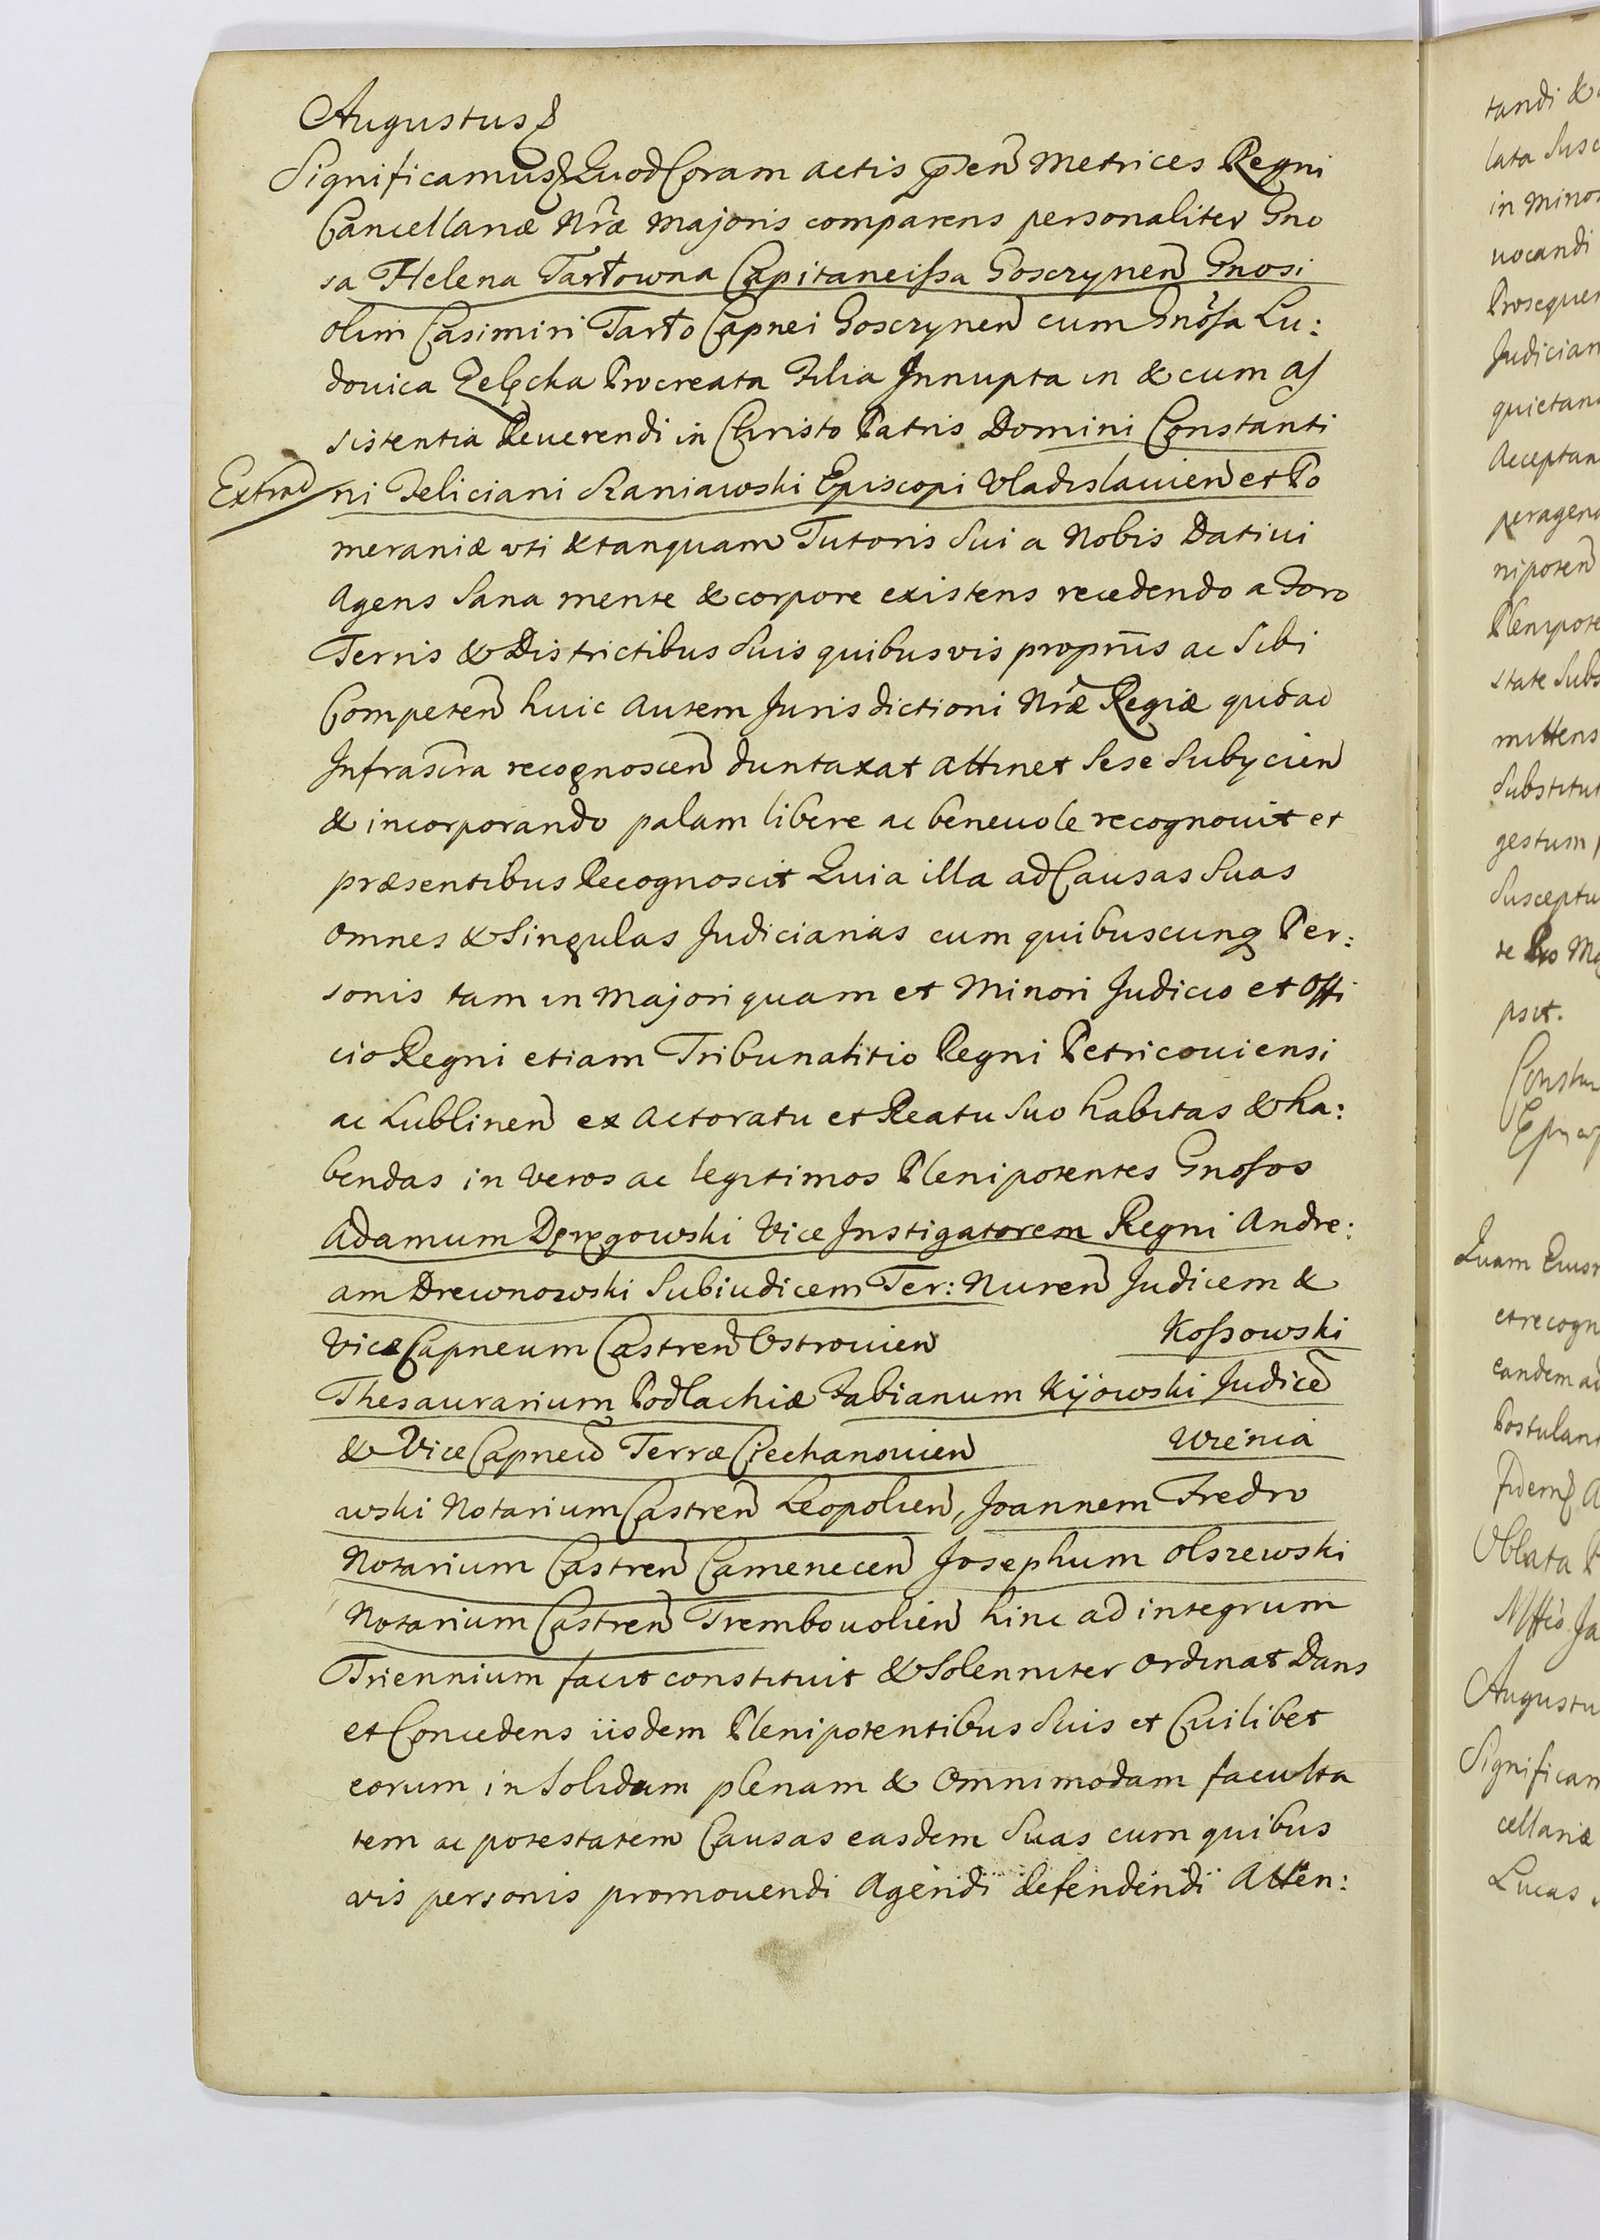 Augustus &
Significamus & Quod Coram actis pñen Metrices Regni
Cancellariæ Nræ Majoris comparens personaliter Gno
sa Helena Tarłowna Capitaneissa Goscrynen Gnosi
olim Casimiri Tarło Capnei Goscrynen cum Gnosa Lu:
douica Zelęcka Procreata Filia Innupta in & cum as
sistentia Reuerendi in Christo Patris Domini Constanti
Extrad ni Feliciani Szaniawski Episcopi Vladislauien et Po
meraniæ uti & tanquam Tutoris Sui a Nobis Datiui
Agens Sana mente & corpore existens recedendo a Foro
Terris & Districtibus Suis quibusvis proprijs ac Sibi
Competen huic autem Jurisdictioni Nræ Regiæ quo ad
Infrascra recognoscen duntaxat attinet Sese Subycien
& incorporando palam libere ac beneuole recognouit et
præsentibus Recognoscit Quia illa ad Causas Suas
omnes & Singulas Judiciarias cum quibuscunq Per:
sonis tam in Majori quam et Minori Judicio et Offi
cio Regni etiam Tribunalitio Regni Petricouiensi
ac Lublinen ex Actoratu et Reatu Suo habitas & ha:
bendas in veros ac legitimos Plenipotentes Gnosos
Adamum Dęręgowski Vice Instigatorem Regni Andre:
am Drewnowski Subiudicem Ter: Nuren Judicem &
Vice Capneum Castren Ostrouien Kossowski
Thesaurarium Podlachiæ Fabianum Kijowski Judicē
& Vice Capneū Terræ Ciechanouien Wienia
wski Notarium Castren Leopolien, Joannem Fredro
Notarium Castren Camenecen Josephum Olszewski
Notarium Castren Trembouolien hinc ad integrum
Triennium facit constituit & Solenniter ordinat Dans
et Concedens iisdem Plenipotentibus Suis et Cuilibet
eorum in Solidum plenam & Omnimodam faculta
tem ac potestatem Causas easdem Suas cum quibus
vis personis promouendi Agendi defendendi Atten:
tandi &
lata Susc
in Minor
uocandi
Prosequen
Judiciar
quietan
Acceptan
peragen
nipoten
Plenipote
state Subs
mittens
Substitut
gestum
Susceptu
te Pro Ma
psit.
Constan
Episcop
Quam Eius
et recogn
eandem ad
Postulan
fidemq A
Oblata
Augustu
Significam
cellariæ
Lucas